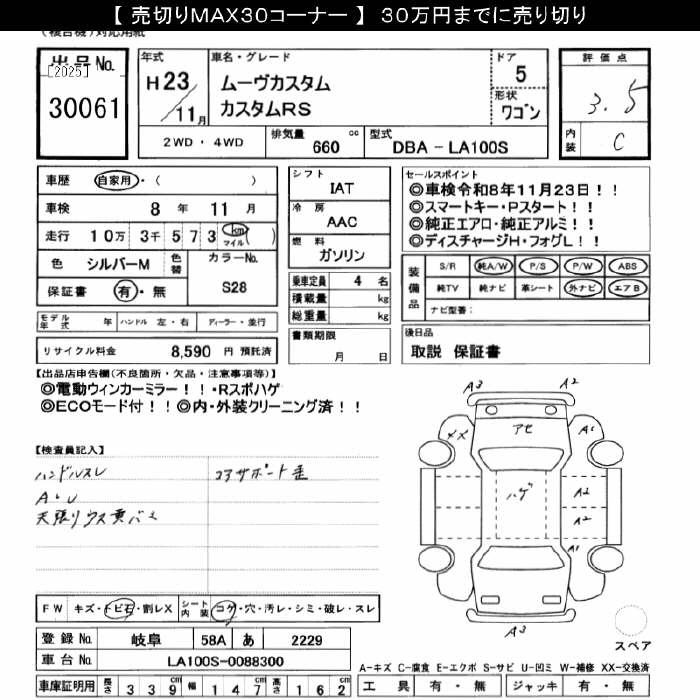 【 売切りMAX30コーナー 】 30万円までに売り切り
(複合機)対応用紙
出品No.
[2025]
30061
年式
H23
11月
車名・グレード
ムーヴカスタム
カスタムRS
ドア
5
形状
ワゴン
評価点
3.5
内装
C
2WD・4WD
排気量
660 cc
型式
DBA - LA100S
車歴
自家用・( )
車検 8 年 11 月
走行 10万 3千 5 7 3 km マイル ( )
色 シルバーM 色替
カラーNo.
S28
保証書 有・無
モデル年式 年 ハンドル 左・右 ディーラー・並行
リサイクル料金 8,590 円 預託済
シフト
IAT
冷房
AAC
燃料
ガソリン
乗車定員 4 名
積載量 kg
総重量 kg
書類期限
月 日
セールスポイント
◎車検令和8年11月23日!!
◎スマートキー・Pスタート!!
◎純正エアロ・純正アルミ!!
◎ディスチャージH・フォグL!!
装備品
S/R 純A/W P/S P/W ABS
純TV 純ナビ 革シート 外ナビ エアB
ナビ型番:
後日品
取説 保証書
【出品店申告欄(不良箇所・欠品・注意事項等)】
◎電動ウィンカーミラー!!・Rスポハゲ
◎ECOモード付!!◎内・外装クリーニング済!!
【検査員記入】
ハンドルスレ
コアサポート歪
A・U
天張りウス黄バミ
A3
A2
メメ
アセ
A1
ハゲ
A2
A2
A1
A3
スペア
FW キズ・トビ石・割レX シート内装 コゲ・穴・汚レ・シミ・破レ・スレ
登録No. 岐阜 58A あ 2229
車台No. LA100S-0088300
A-キズ C-腐食 E-エクボ S-サビ U-凹ミ W-補修 XX-交換済
車庫証明用 長さ 3 3 9 cm 幅 1 4 7 cm 高さ 1 6 2 cm
工具 有・無 ジャッキ 有・無